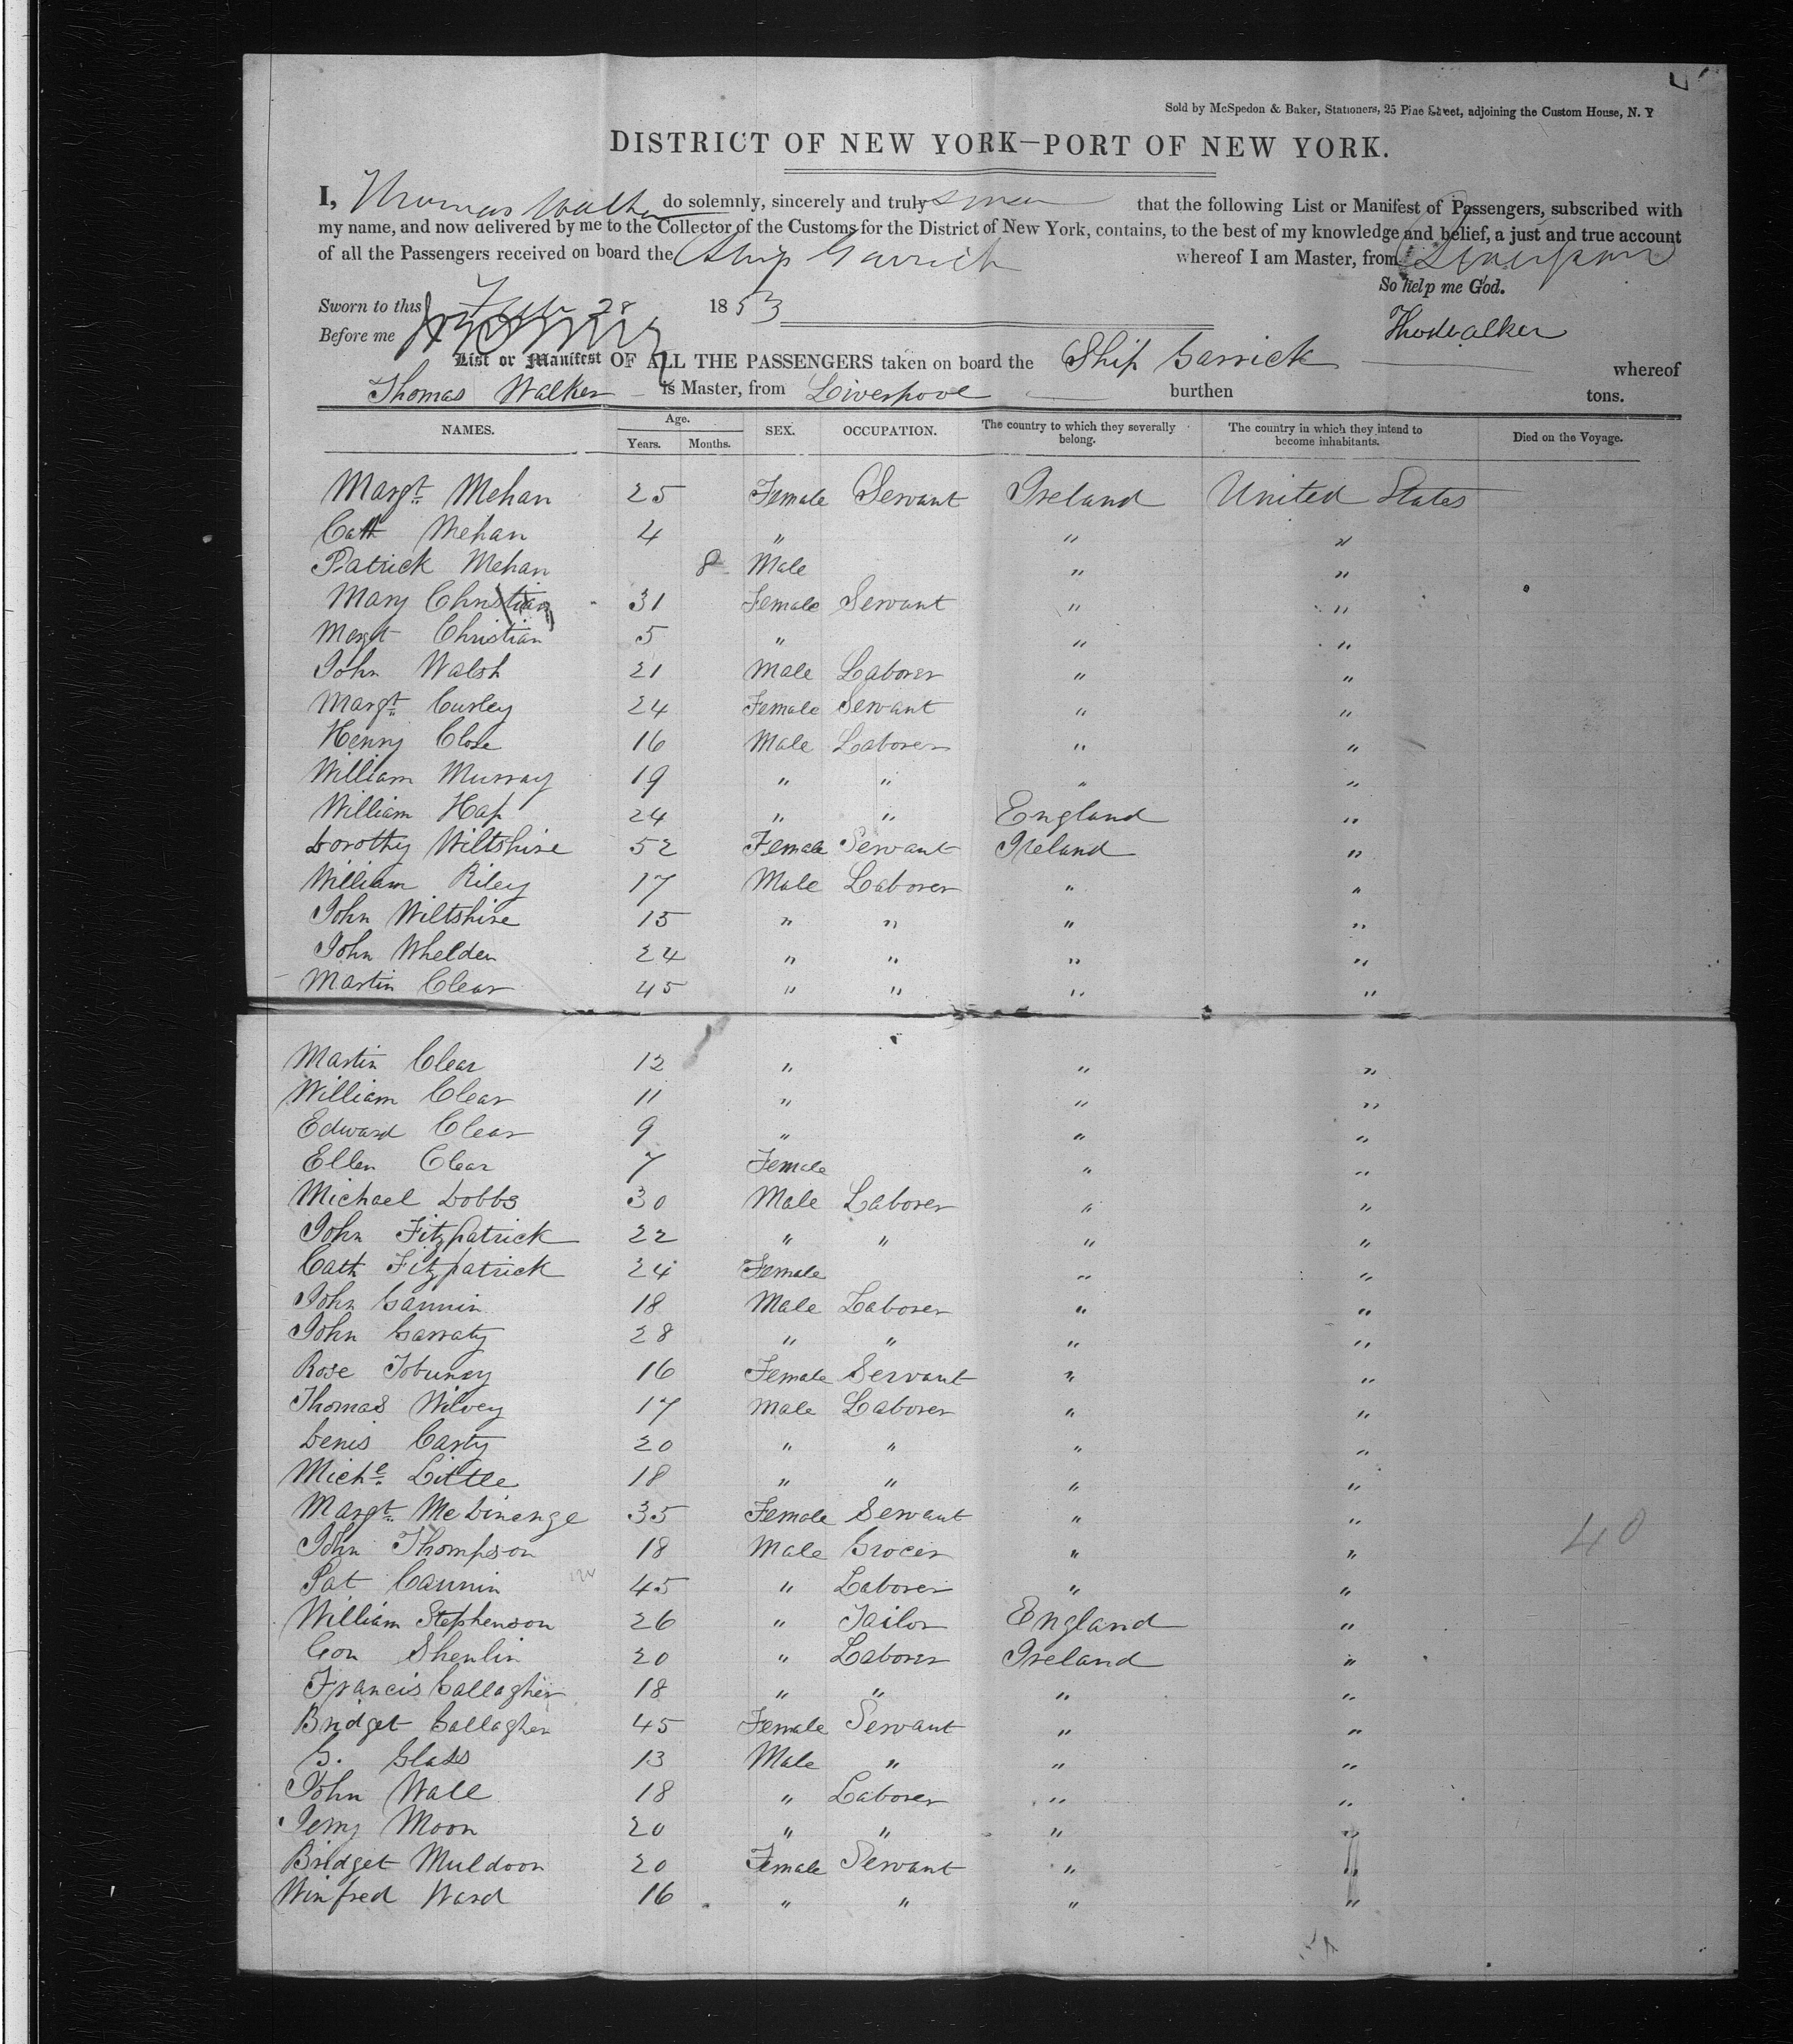 Sold by McSpedon & Baker, Stationers, 25 Pine Street, adjoining the Custom House, N. Y
DISTRICT OF NEW YORK—PORT OF NEW YORK.
I, Thomas Walker do solemnly, sincerely and truly swear that the following List or Manifest of Passengers, subscribed with
my name, and now delivered by me to the Collector of the Customs for the District of New York, contains, to the best of my knowledge and belief, a just and true account
of all the Passengers received on board the Ship Garrick whereof I am Master, from Liverpool
So help me God.
Sworn to this Feby 28 1853
Thos Walker
Before me
List or Manifest OF ALL THE PASSENGERS taken on board the Ship Garrick whereof
Thomas Walker is Master, from Liverpool burthen tons.
NAMES. Age. Years. Months. SEX. OCCUPATION. The country to which they severally belong. The country in which they intend to become inhabitants. Died on the Voyage.
Margt Mehan 25 Female Servant Ireland United States
Cath Mehan 4 " " "
Patrick Mehan 8 Male " "
Mary Christian 31 Female Servant " "
Margt Christian 5 " " "
John Walsh 21 Male Laborer " "
Margt Curley 24 Female Servant " "
Henry Close 16 Male Laborer " "
William Murray 19 " " " "
William Hap 24 " " England "
Dorothy Wiltshire 52 Female Servant Ireland "
William Riley 17 Male Laborer " "
John Wiltshire 15 " " " "
John Whelden 24 " " " "
Martin Clear 45 " " " "
Martin Clear 12 " " "
William Clear 11 " " "
Edward Clear 9 " " "
Ellen Clear 7 Female " "
Michael Dobbs 30 Male Laborer " "
John Fitzpatrick 22 " " " "
Cath Fitzpatrick 24 Female " "
John Gannin 18 Male Laborer " "
John Garraty 28 " " " "
Rose Tobuney 16 Female Servant " "
Thomas Wilvey 17 Male Laborer " "
Denis Carty 20 " " " "
Michl Little 18 " " " "
Margt McDinenge 35 Female Servant " "
John Thompson 18 Male Grocer " "
Pat Cannin 45 " Laborer " "
William Stephenson 26 " Tailor England "
Con Shenlin 20 " Laborer Ireland "
Francis Gallagher 18 " " " "
Bridget Gallagher 45 Female Servant " "
G. Glass 13 Male " " "
John Wall 18 " Laborer " "
Jerry Moon 20 " " " "
Bridget Muldoon 20 Female Servant " "
Winfred Ward 16 " " " "
40